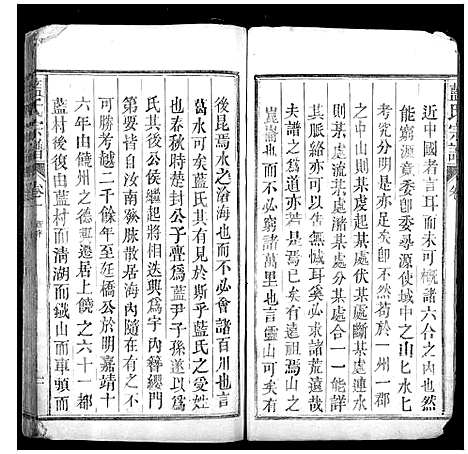 藍氏宗譜
近中國者言耳而未可概諸六合之內也人
能窮源竟委卽委尋源使域中之山與水匕
考究分明是亦足矣卽不然苟於一州一郡
之中山則某處起某處斷某處連水
則某處分某處合一一能詳
以告人焉斯亦山水憾耳奚必求諸荒遠哉
夫譜之爲道亦若是焉已矣言山而不必求諸
崑崙也而不必窮諸萬里也言靈山可矣
後昆焉水之溶海也而不必會諸百川也言
葛水可矣藍氏何以異於斯乎藍氏之受姓
也春秋時楚封公子亹爲藍尹子孫遂以爲
氏其後公侯繼起將相迭興爲字內簪纓門
第要皆自汝南發脉散居海內隨在有之不
勝其考越二千餘年至紅橋公於明嘉靖十
六年由饒州之德興遷居上饒之六十一都
藍村後復由藍村而清湖而鐵山而耳頭而
藍氏宗譜